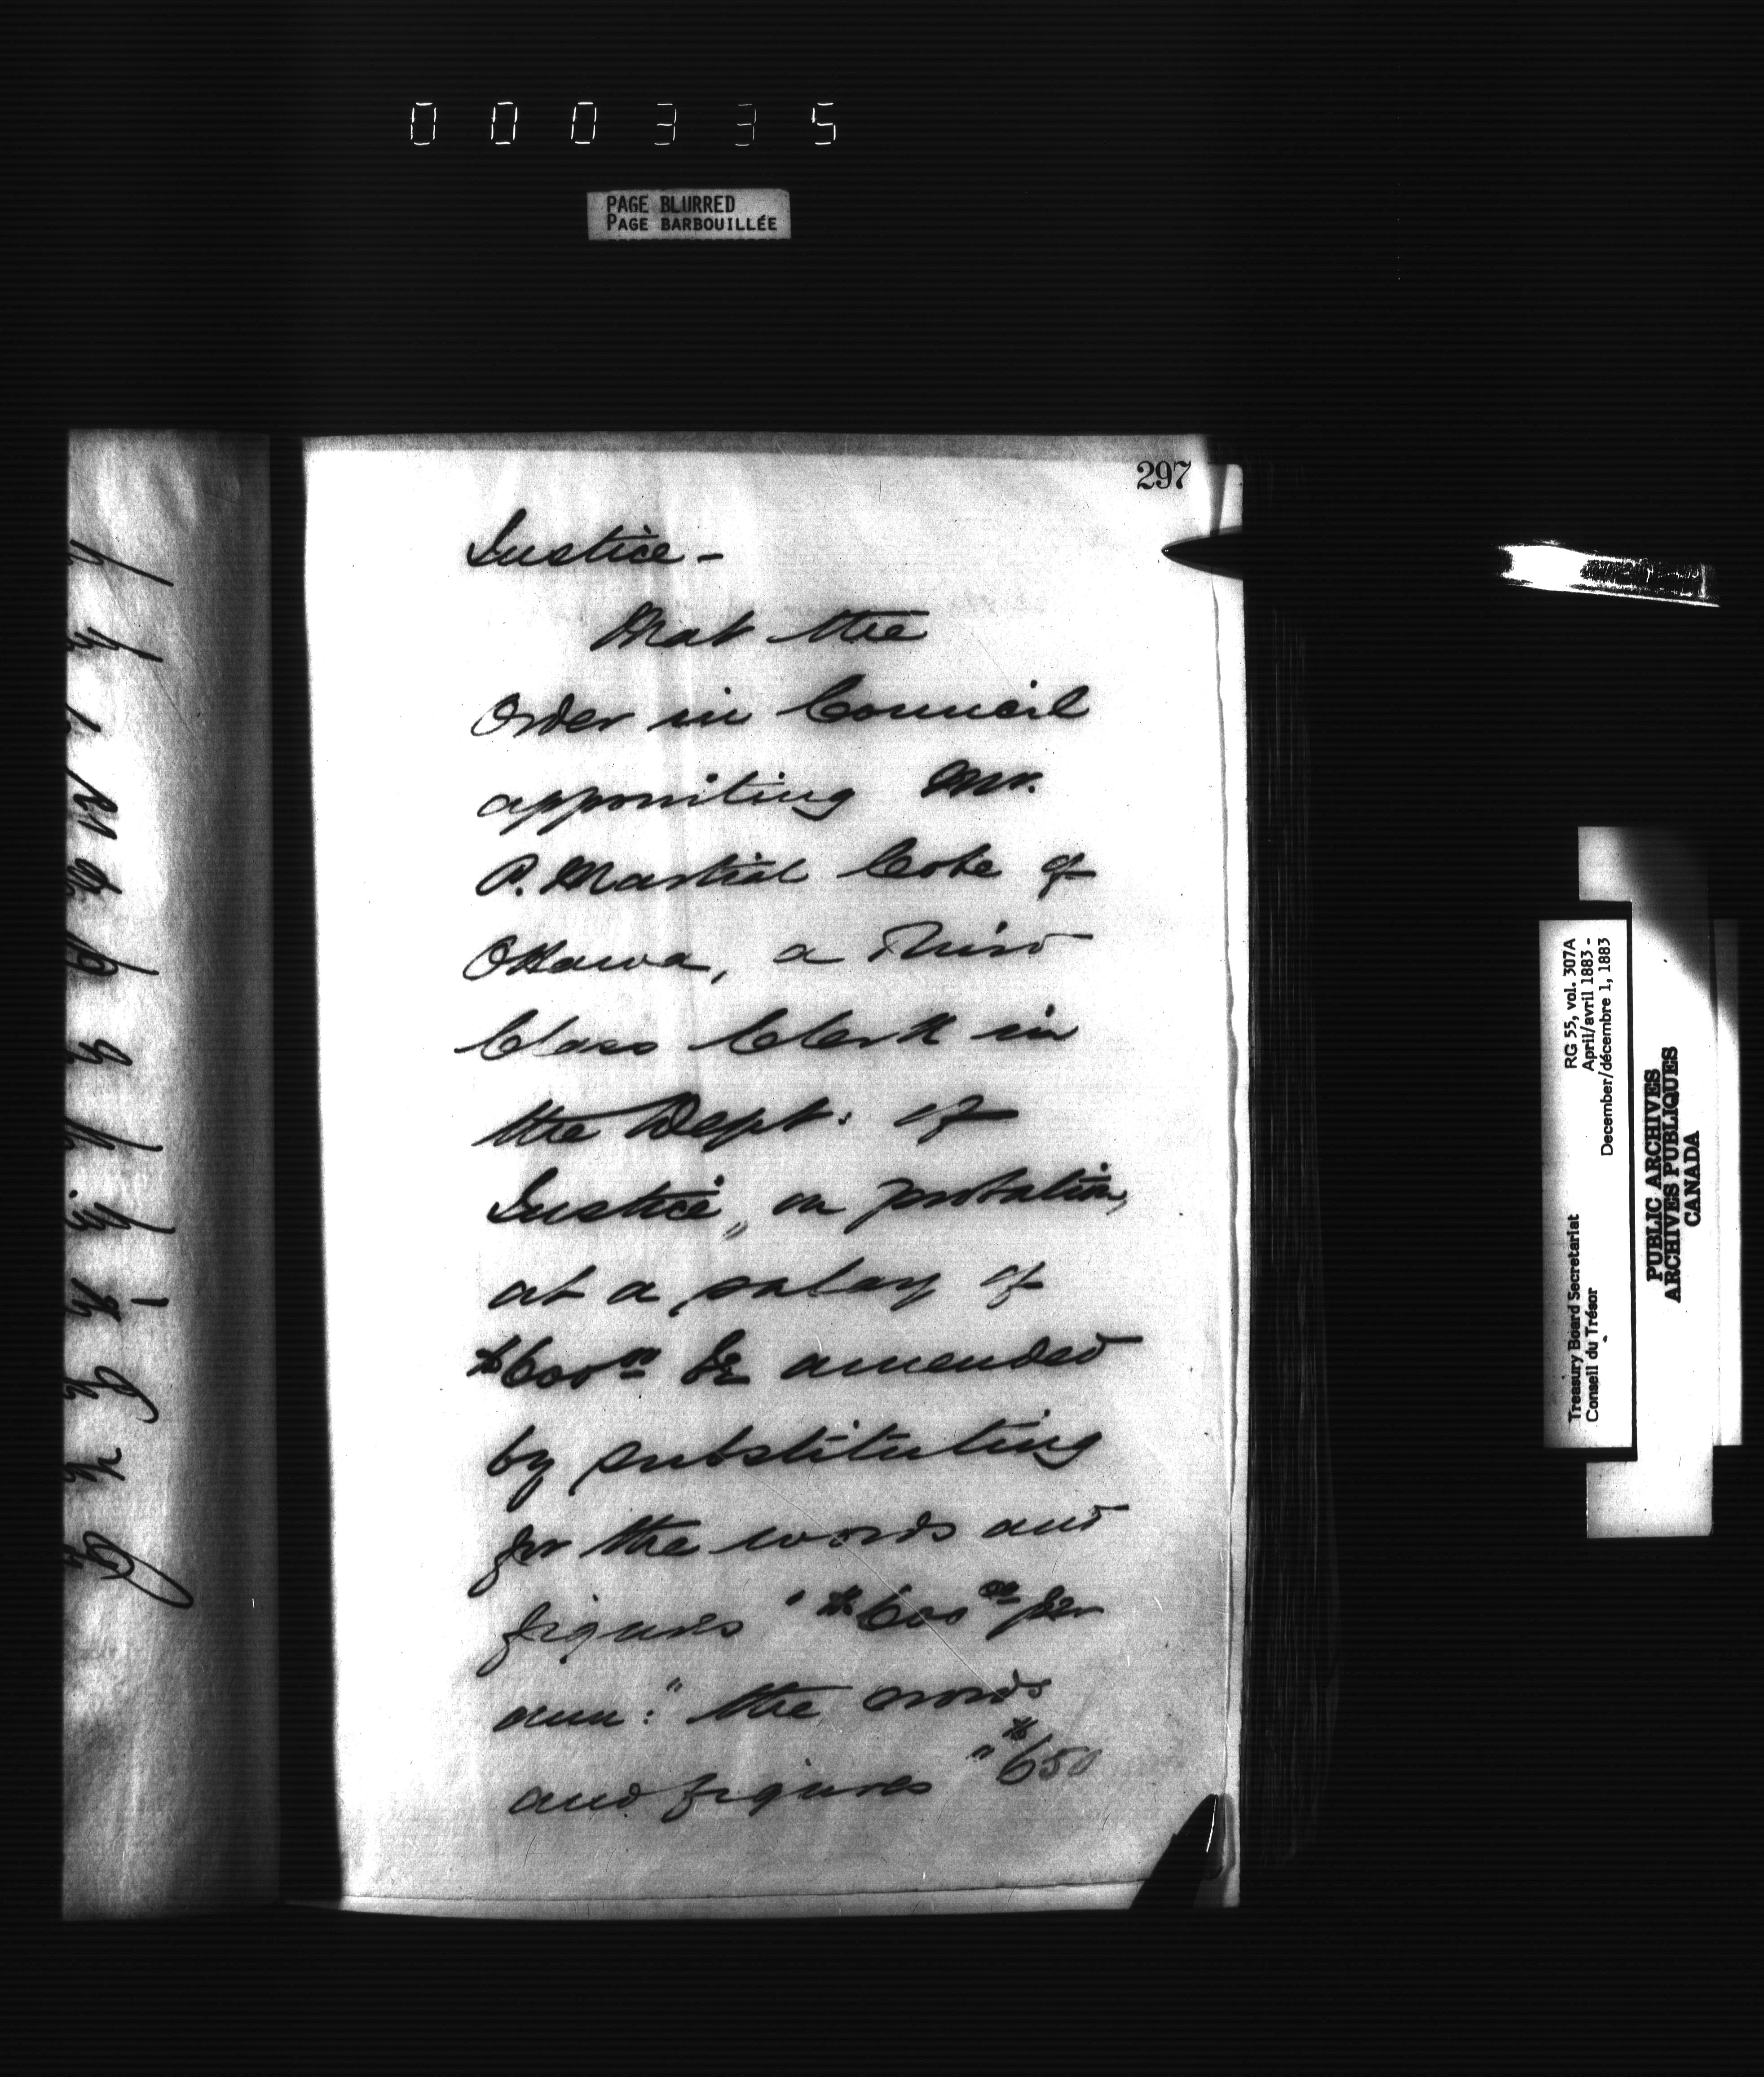 000335
PAGE BLURRED
PAGE BARBOUILLÉE
297
Justice -
That the
Order in Council
appointing Mr.
P. Martial Cote of
Ottawa, a Third
Class Clerk in
the Dept: of
Justice, on probation,
at a salary of
$600.00 be amended
by substituting
for the words and
figures "$600.00 per
ann:" the words
and figures "$650
Treasury Board Secretariat
Conseil du Trésor
RG 55, vol. 307A
April/avril 1883 -
December/décembre 1, 1883
PUBLIC ARCHIVES
ARCHIVES PUBLIQUES
CANADA